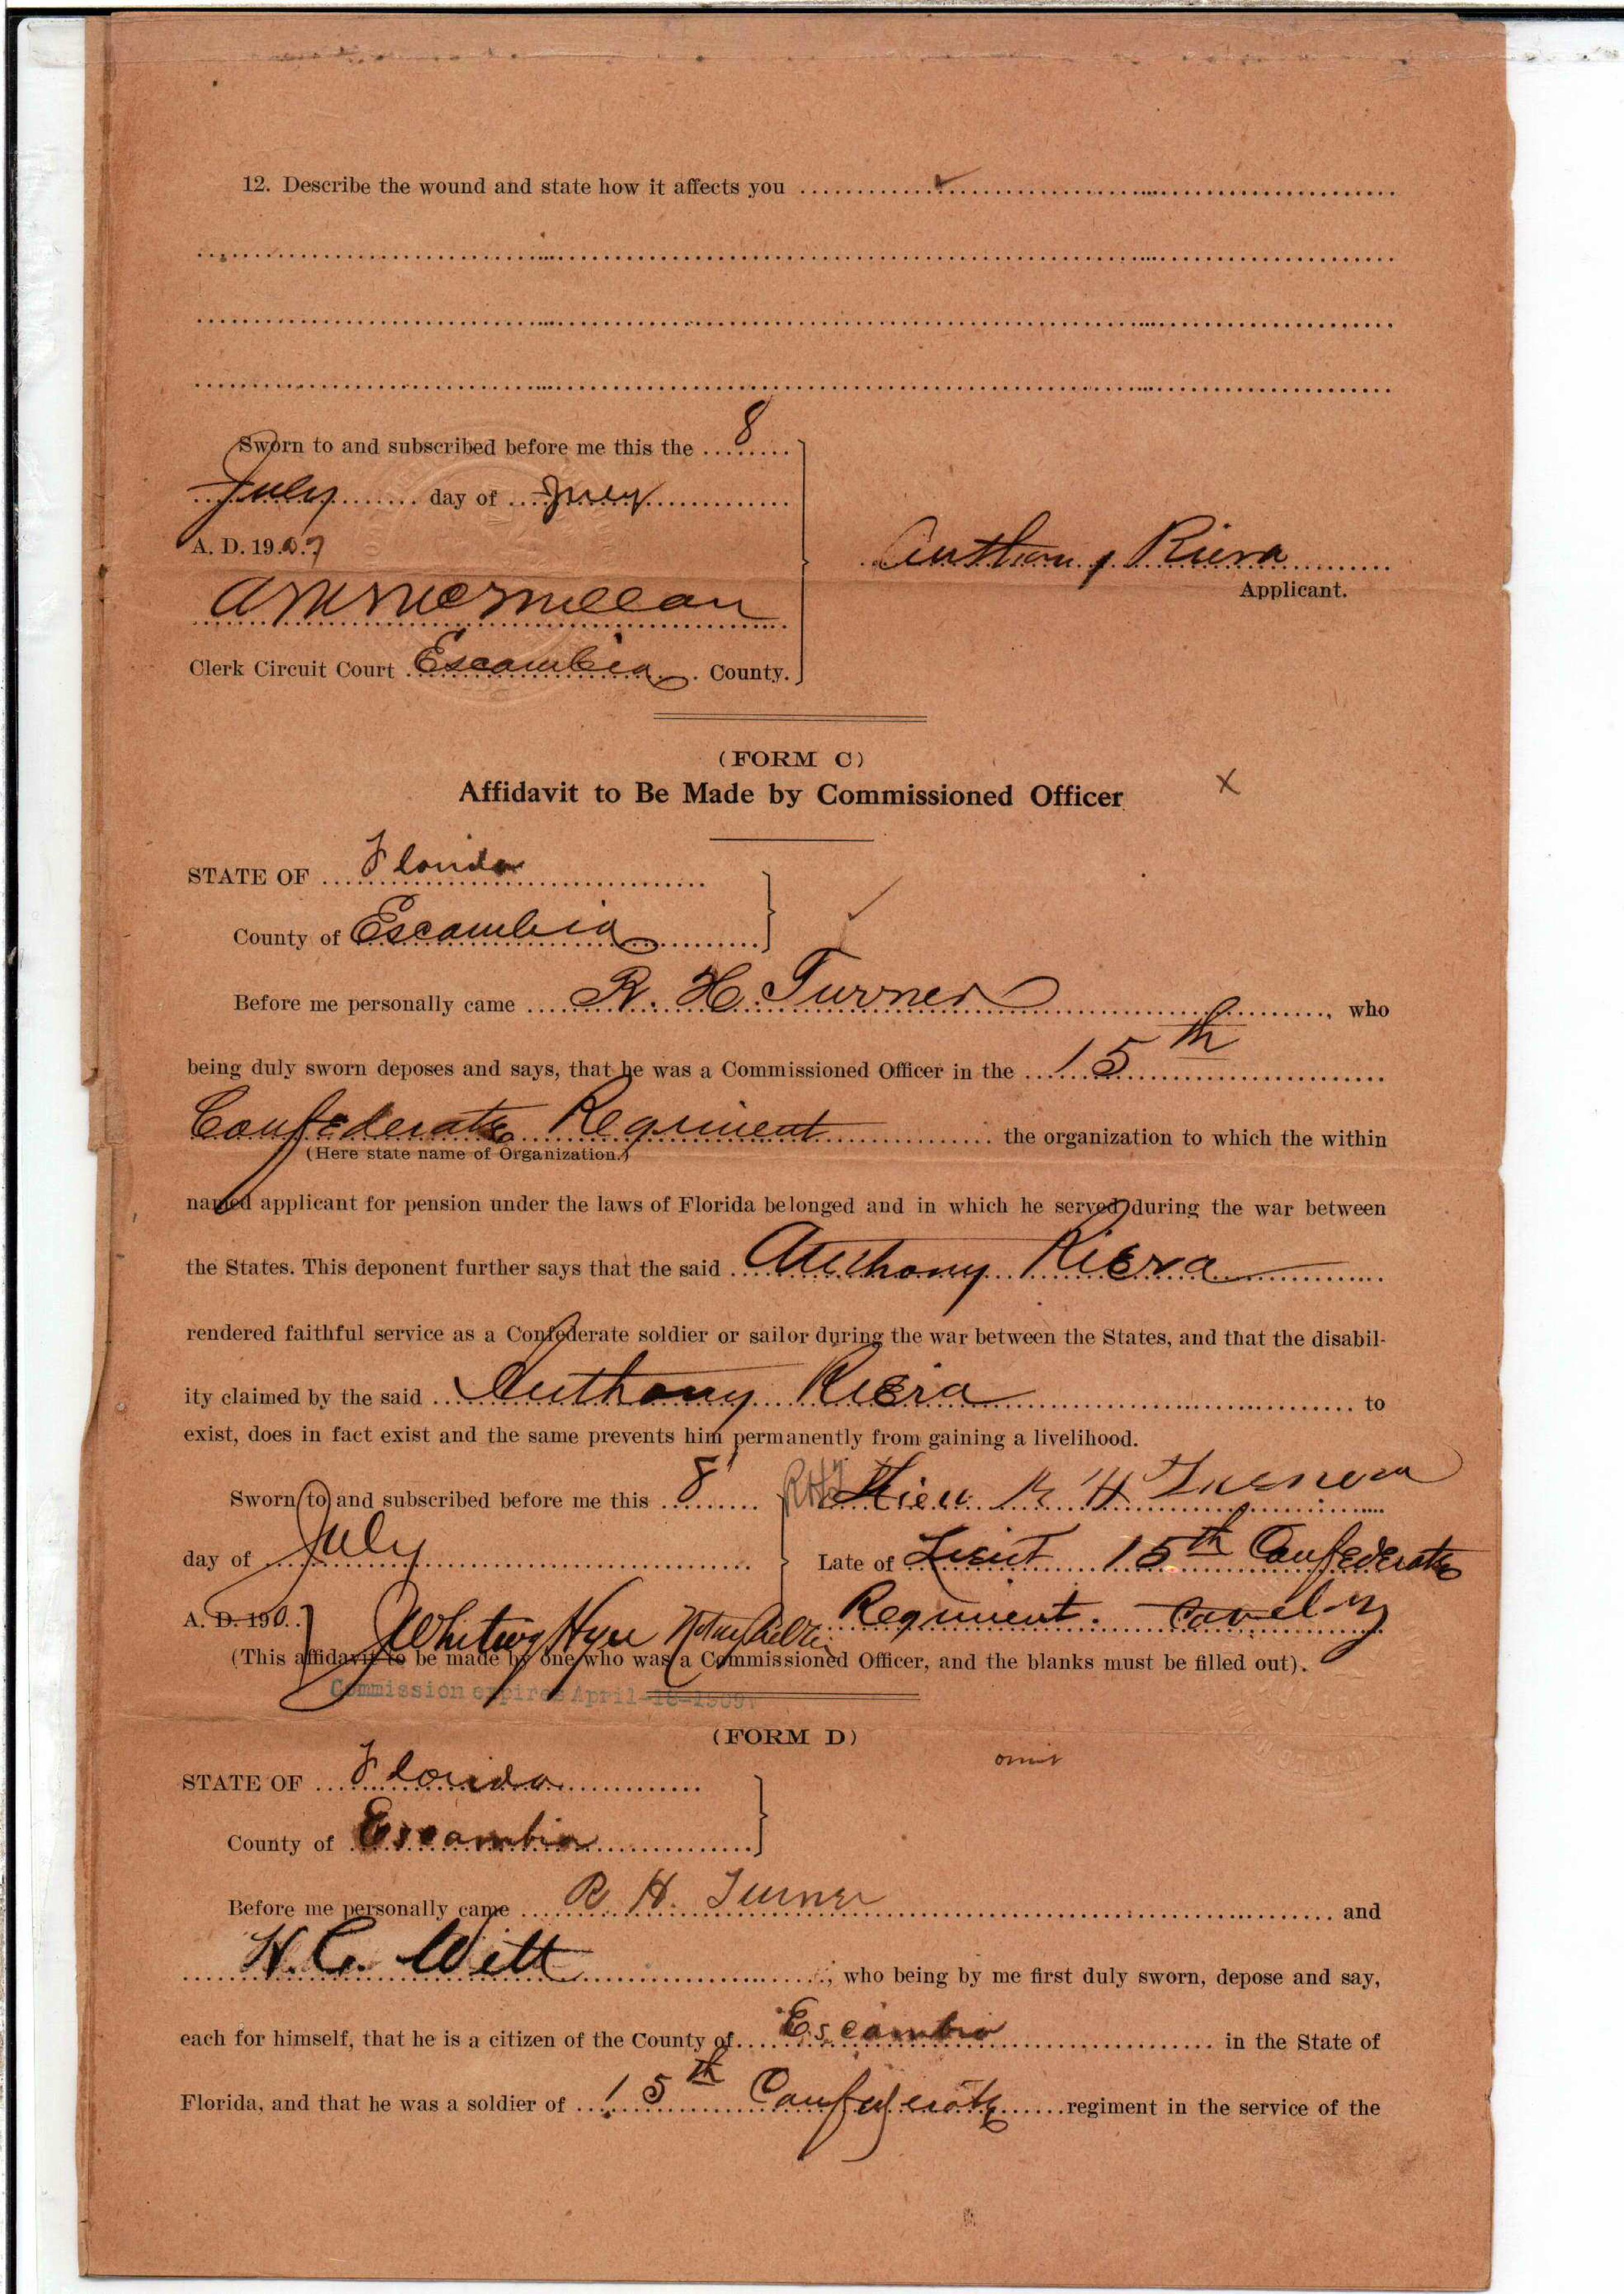 12. Describe the wound and state how it affects you
Sworn to and subscribed before me this the 8
July day of July
A. D. 1907
Anthony Riera
Applicant.
A M McMillan
Clerk Circuit Court Escambia County.
(FORM C)
Affidavit to Be Made by Commissioned Officer X
STATE OF Florida
County of Escambia
Before me personally came R. H. Turner, who
being duly sworn deposes and says, that he was a Commissioned Officer in the 15th
Confederate Regiment the organization to which the within
(Here state name of Organization.)
named applicant for pension under the laws of Florida belonged and in which he served during the war between
the States. This deponent further says that the said Anthony Riera
rendered faithful service as a Confederate soldier or sailor during the war between the States, and that the disabil-
ity claimed by the said Anthony Riera to
exist, does in fact exist and the same prevents him permanently from gaining a livelihood.
Sworn to and subscribed before me this 8 RHT R H Turner
day of July Late of Lieut 15th Confederate
A. D. 190 Whiting Hyer Notary Public Regiment. Cavelry
(This affidavit to be made by one who was a Commissioned Officer, and the blanks must be filled out).
Commission expires April-18-1909.
(FORM D)
omit
STATE OF Florida
County of Escambia
Before me personally came R H. Turner and
H. C. Witt, who being by me first duly sworn, depose and say,
each for himself, that he is a citizen of the County of Escambia in the State of
Florida, and that he was a soldier of 15th Confederate regiment in the service of the